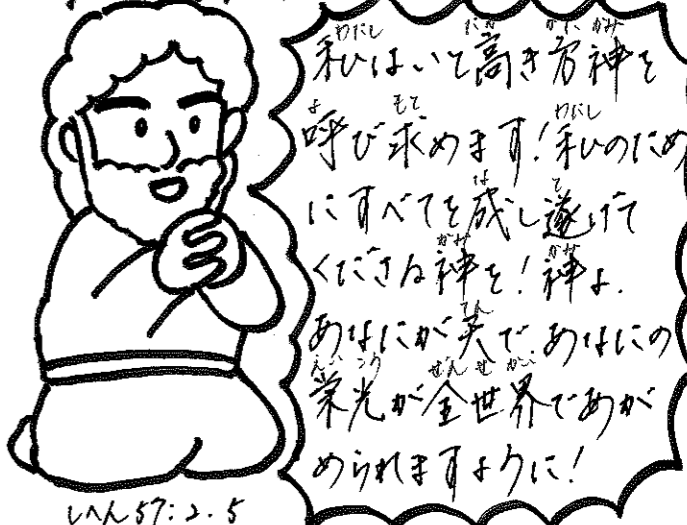 私はいと高き方神を
呼び求めます!私のため
にすべてを成し遂げて
くださる神を!神よ.
あなたが天であなたの
栄光が全世界であが
められますように!
しへん57:2.5